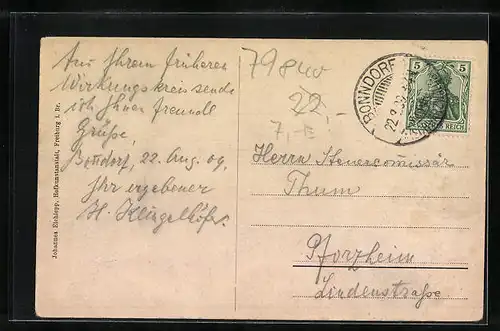 Aus Ihrem früheren
Wirkungskreis sende
ich Ihnen freundl
Grüße,
Bonndorf, 22 Aug. 09,
Ihr ergebener
H. Klingelhöfer.
Johannes Elchlepp, Hofkunstanstalt, Freiburg i. Br.
22,-
7,-E
BONNDORF
22.8.09
5 5
REICH
Herrn Steuercomissär
Thum
Pforzheim
Lindenstraße